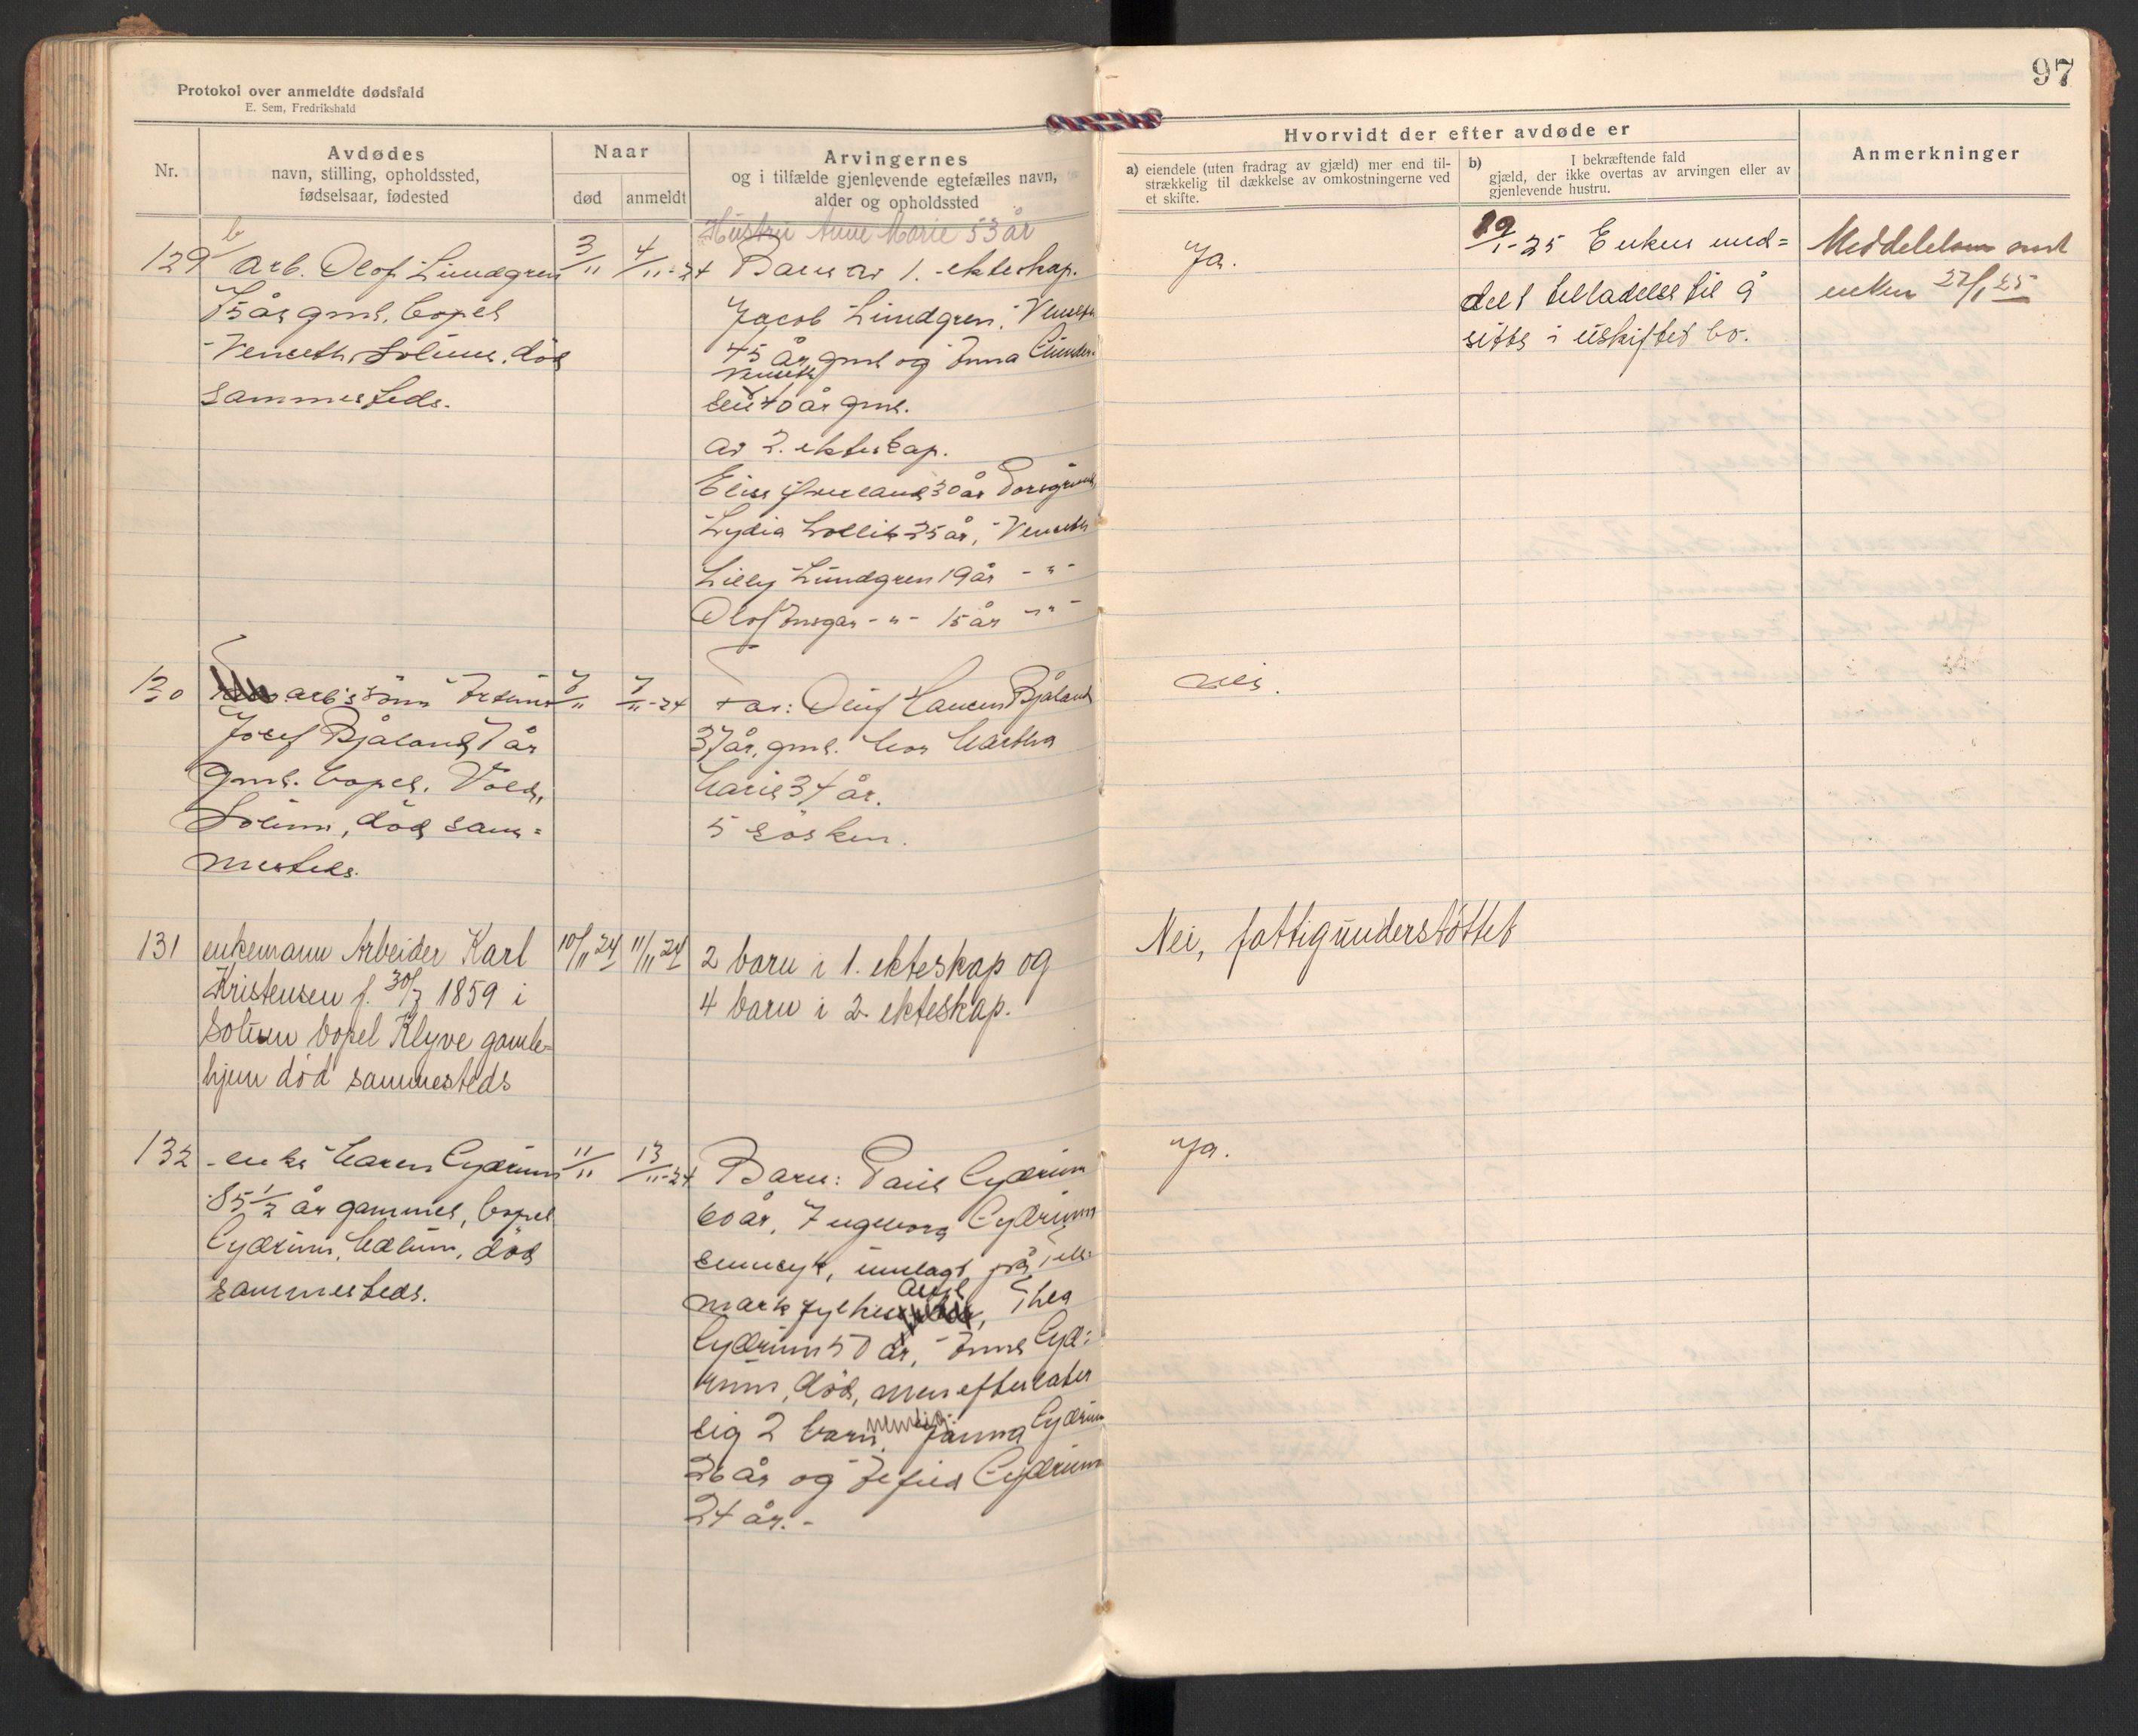 97
Protokol over anmeldte dødsfald
E. Sem, Fredrikshald
Nr.
Avdødes
navn, stilling, opholdssted,
fødselsaar, fødested
Naar
død
anmeldt
Arvingernes
og i tilfælde gjenlevende egtefælles navn,
alder og opholdssted
Hvorvidt der efter avdøde er
a) eiendele (uten fradrag av gjæld) mer end til-
strækkelig til dækkelse av omkostningerne ved
et skifte.
b) I bekræftende fald
gjæld, der ikke overtas av arvingen eller av
gjenlevende hustru.
Anmerkninger
129
Arb. Olof Lundgren
75 år gml. bopel
Venseth, Solum, død
sammesteds.
3/11
4/11-24
Hustru Anne Marie 53 år
Barn av 1. ekteskap.
Jacob Lundgren, Venseth
45 år gml og Anna
Venseth
40 år gml.
av 2. ekteskap.
Elise 30 år Porsgrund
Lydia 25 år, Venseth
Lilly Lundgren 19 år - " -
Olof - " - 15 år - " -
Ja.
19/1-25 Enken med=
delt tilladelse til å
sitte i uskiftet bo.
Meddelelse sendt
enken 22/1 25
130
arb's sönn
Josef Bjåland 7 år
gml. bopel. Vold,
Solum, död sam=
mesteds.
7/11
7/11-24
Far: Oluf Hansen Bjåland
37 år, gml. Mor Martha
Marie 34 år.
5 sösken.
nei.
131
enkemann Arbeider Karl
Kristensen f. 30/7 1859 i
Solum bopel Klyve gamle=
hjem död sammesteds
10/11 24
11/11 24
2 barn i 1. ekteskap og
4 barn i 2. ekteskap.
Nei, fattigunderstöttet
132
enke Maren Gjærum
85 1/2 år gammel, bopel
Gjærum, Mælum, död
sammesteds.
11/11
13/11-24
Barn: Paul Gjærum
60 år, Ingeborg Gjærum
sinnsyk, innlagt på Tele-
mark fylkes asyl, Thea
Gjærum 50 år, Gjæ=
rum, död, men efterlater
sig 2 barn, nemlig: Gjærum
26 år og Gjærum
24 år. -
Ja.